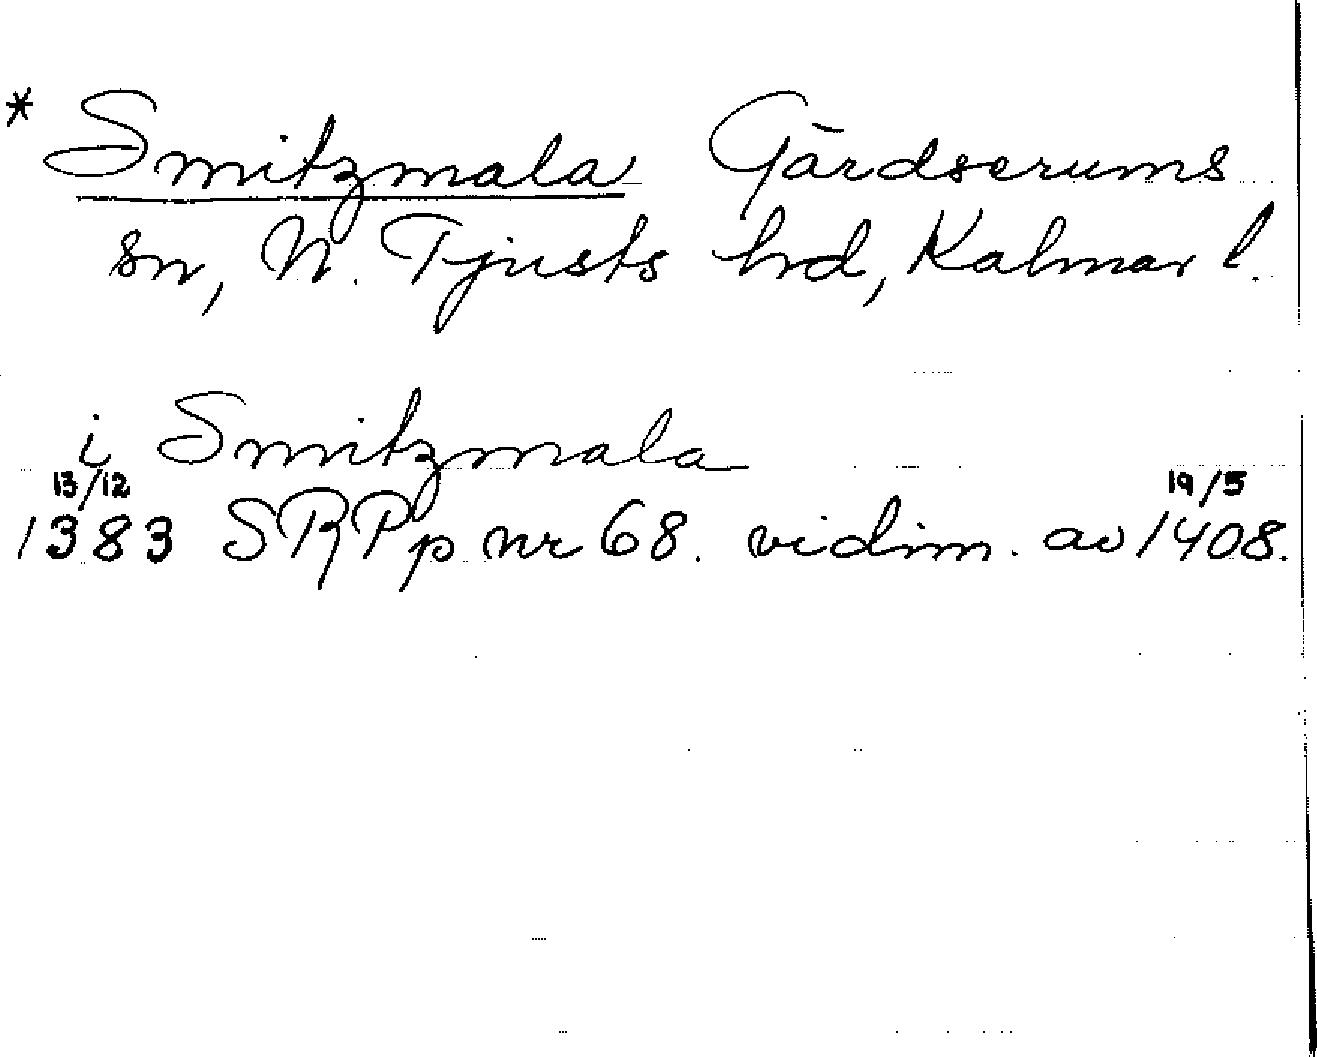 * Smitzmala Gärdserums
sn, N. Tjusts hrd, Kalmar l.
i Smitzmala
13/12 19/5
1383 SRPp nr 68. vidim. av 1408.